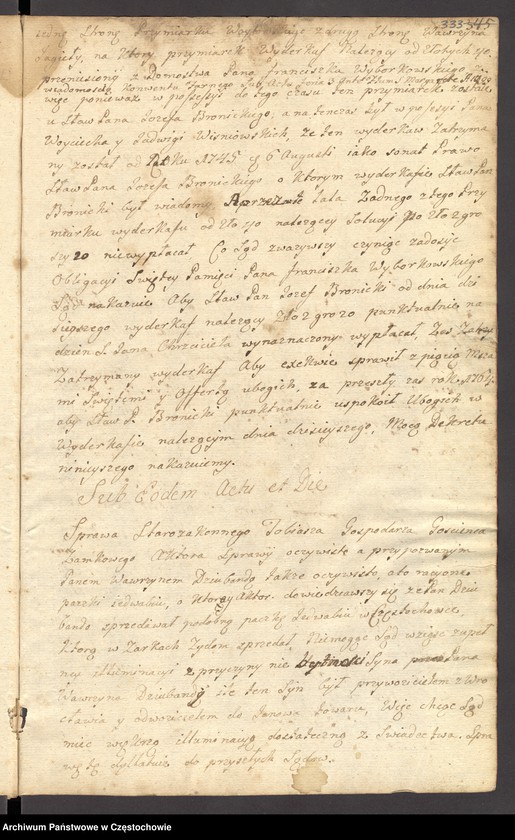 333 345
jedną Stroną Przymiarka Wybor zdrugą Stroną Wawrzyna
Jagieły, na ktory przymiarek Wyderkaf Należący od złotych 40
przeniesiony z Domostwa Pana Franciszka Wyborkowskiego Za
wiadomoscią Konwentu Farnego Sub Actu
więc ponieważ w possessyi do tego czasu ten przymiarek zostaie
u Sław Pana Jozefa Bronickiego, a natenczas był w possesyi Pana
Woyciecha y Jadwigi Wisniowskich, że ten wyderkaw Zatrzyma
ny został od Roku 1745 g 6 Augusti iako sonat Prawo
Sław Pana Jozefa Bronickiego o ktorym wyderkafie Sław Pan
Bronicki był wiadomy, A przez te lata Żadnego z tego Przy
miarku wyderkafu od zło 40 należącey Solucyi po zło 2 gro
szy 20 nie wypłacał Co Sąd zwazywszy czyniąc zadosyc
Obligacyi Swiętey Pamięci Pana Franciszka Wyborkowskiego
Sąd nakazuie Aby Sław Pan Jozef Bronicki od dnia dzi
sieyszego wyderkaf należący zło 2 gro 20 punktualnie na
dzien S. Jana Chrzciciela wyznaczony wypłacał, Zas Za
Zatrzymany wyderkaf Aby exekwie sprawił z pięcią Msza
mi Swiętemi y Offertą ubogich, za przeszły zas rok 1764
aby Sław P Bronicki punktualnie uspokoił Ubogich w
Wyderkafie należącym dnia dzisieyszego, Mocą Dekretu
ninieyszego nakazuiemy.
Sub Eodem Actu et Die
Sprawa Starozakonnego Tobiasza Gospodarza Goscienca
Zamkowego Aktora Sprawy oczywiste a przypozwanym
Panem Wawrzynem Dziubandą także oczywisto, ato racyone
paczki Jedwabiu, o ktorą Aktor. dowiedziawszy się że Pan Dziu
banda sprzedawał podobną paczkę Jedwabiu w Częstochowie
Ktorą w Żarkach Żydom sprzedał, Niemogąc Sąd wziąsc zupeł
ney illuminacyi z przyczyny nie Syna Pana
Wawrzyna Dziubandy iże ten Syn był przywozicielem z Wro
cławia y odwozicielem do Janowa towaru, Więc chcąc Sąd
miec większą illuminacyią dostateczną z Swiadectwa. Spra
wę tę do przyszłych Sądow.
Archiwum Państwowe w Częstochowie